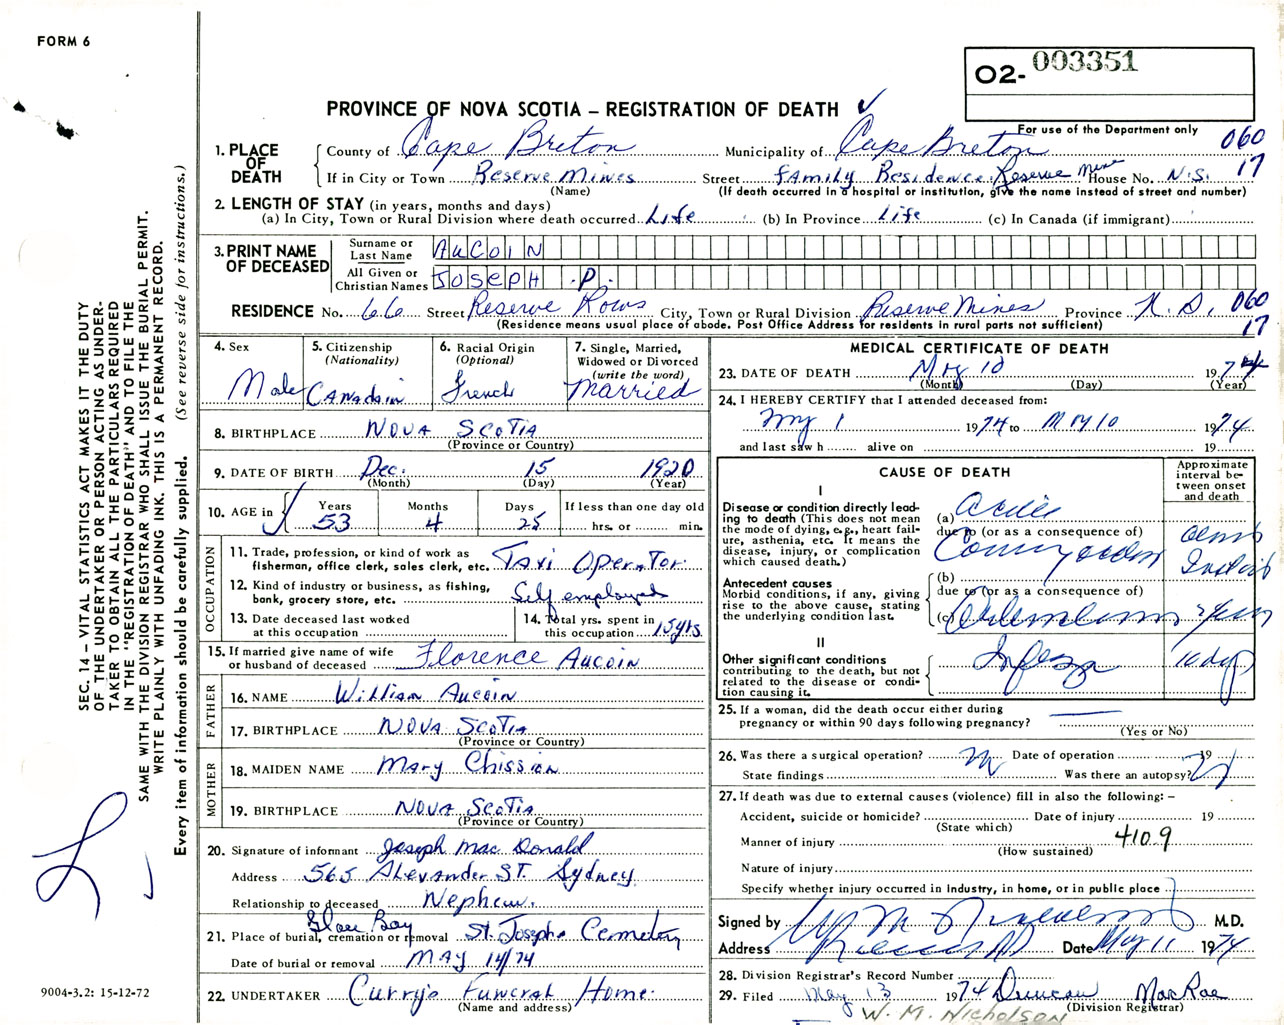 FORM 6
O2- 003351
For use of the Department only
PROVINCE OF NOVA SCOTIA – REGISTRATION OF DEATH
060
17
1. PLACE OF DEATH
County of Cape Breton Municipality of Cape Breton
If in City or Town Reserve Mines Street Family Residence Reserve Mine House No. N.S.
(Name) (If death occurred in a hospital or institution, give the name instead of street and number)
2. LENGTH OF STAY (in years, months and days)
(a) In City, Town or Rural Division where death occurred Life (b) In Province Life (c) In Canada (if immigrant)
3. PRINT NAME OF DECEASED
Surname or Last Name AUCOIN
All Given or Christian Names JOSEPH .P.
RESIDENCE No. 66 Street Reserve Rows City, Town or Rural Division Reserve Mines Province N.S. 060
(Residence means usual place of abode. Post Office Address for residents in rural parts not sufficient) 17
4. Sex Male
5. Citizenship (Nationality) Canadain
6. Racial Origin (Optional) French
7. Single, Married, Widowed or Divorced (write the word) Married
8. BIRTHPLACE Nova Scotia
(Province or Country)
9. DATE OF BIRTH Dec. 15 1920
(Month) (Day) (Year)
10. AGE in Years 53 Months 4 Days 25 If less than one day old hrs. or min.
OCCUPATION
11. Trade, profession, or kind of work as fisherman, office clerk, sales clerk, etc. Taxi Operator
12. Kind of industry or business, as fishing, bank, grocery store, etc. Self employed
13. Date deceased last worked at this occupation
14. Total yrs. spent in this occupation 15yrs
15. If married give name of wife or husband of deceased Florence Aucoin
FATHER
16. NAME William Aucoin
17. BIRTHPLACE Nova Scotia
(Province or Country)
MOTHER
18. MAIDEN NAME Mary Chission
19. BIRTHPLACE Nova Scotia
(Province or Country)
20. Signature of informant Joseph Mac Donald
Address 565 Alexander ST. Sydney
Relationship to deceased Nephew.
21. Place of burial, cremation or removal Glace Bay St. Josephs Cemetery
Date of burial or removal MAY 14/74
22. UNDERTAKER Curry's Funeral Home.
(Name and address)
MEDICAL CERTIFICATE OF DEATH
23. DATE OF DEATH May 10 1974
(Month) (Day) (Year)
24. I HEREBY CERTIFY that I attended deceased from:
May 1 1974 to May 10 1974
and last saw h alive on 19
CAUSE OF DEATH
Approximate interval between onset and death
I
Disease or condition directly leading to death (This does not mean the mode of dying, e.g., heart failure, asthenia, etc. It means the disease, injury, or complication which caused death.)
(a) Acute
due to (or as a consequence of)
Coronary
Antecedent causes
Morbid conditions, if any, giving rise to the above cause, stating the underlying condition last.
(b)
due to (or as a consequence of)
(c)
II
Other significant conditions contributing to the death, but not related to the disease or condition causing it. 10 days
25. If a woman, did the death occur either during pregnancy or within 90 days following pregnancy?
(Yes or No)
26. Was there a surgical operation? Date of operation 19
State findings Was there an autopsy?
27. If death was due to external causes (violence) fill in also the following: –
Accident, suicide or homicide? Date of injury 19
(State which)
Manner of injury 410.9
(How sustained)
Nature of injury
Specify whether injury occurred in Industry, in home, or in public place
Signed by M.D.
Address Date May 11 1974
28. Division Registrar's Record Number
29. Filed May 13 1974 Duncan MacRae
(Division Registrar)
W. M. NICHOLSON
SEC. 14 – VITAL STATISTICS ACT MAKES IT THE DUTY
OF THE UNDERTAKER OR PERSON ACTING AS UNDER-
TAKER TO OBTAIN ALL THE PARTICULARS REQUIRED
IN THE "REGISTRATION OF DEATH" AND TO FILE THE
SAME WITH THE DIVISION REGISTRAR WHO SHALL ISSUE THE BURIAL PERMIT.
WRITE PLAINLY WITH UNFADING INK. THIS IS A PERMANENT RECORD.
Every item of information should be carefully supplied. (See reverse side for instructions.)
9004-3.2: 15-12-72